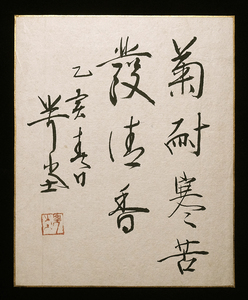 菊耐寒苦
發清香
乙亥春日